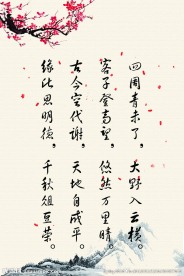 四周青未了，大野入云横。
客子登高望，悠然万里晴。
古今空代谢，天地自成平。
缘此思明德，千秋俎豆荣。